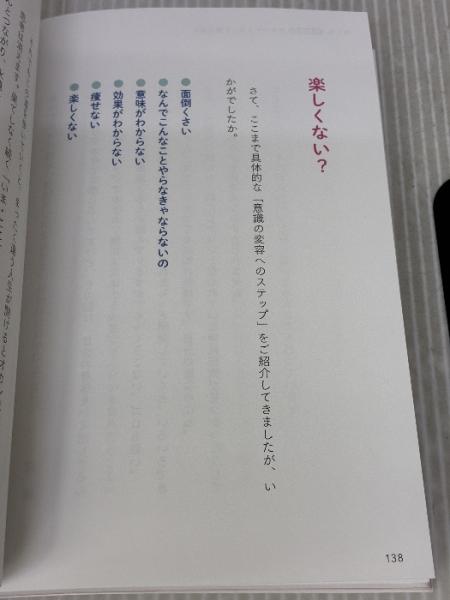 楽しくない？
さて、ここまで具体的な「意識の変容へのステップ」をご紹介してきましたが、い
かがでしたか。
●面倒くさい
●なんでこんなことやらなきゃならないの
●意味がわからない
●効果がわからない
●痩せない
●楽しくない
138